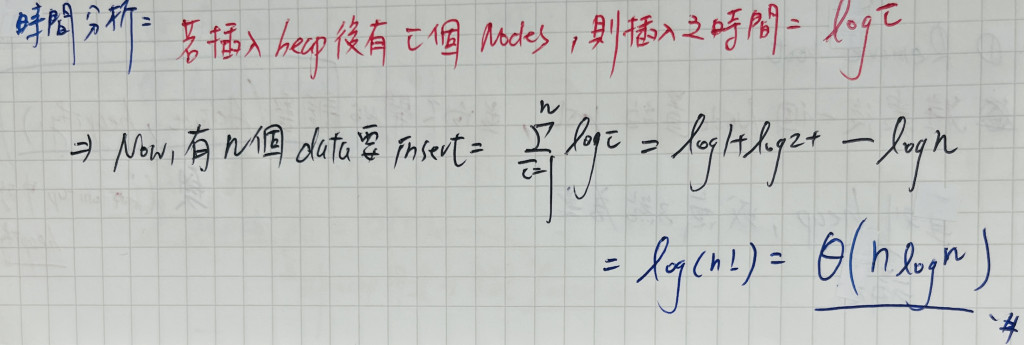 時間分析= 若插入heap後有i個Nodes,則插入之時間= log i
⇒ Now, 有n個data要insert= ∑_{i=1}^{n} log i = log1+log2+ — log n
= log(n!) = θ(n log n) #